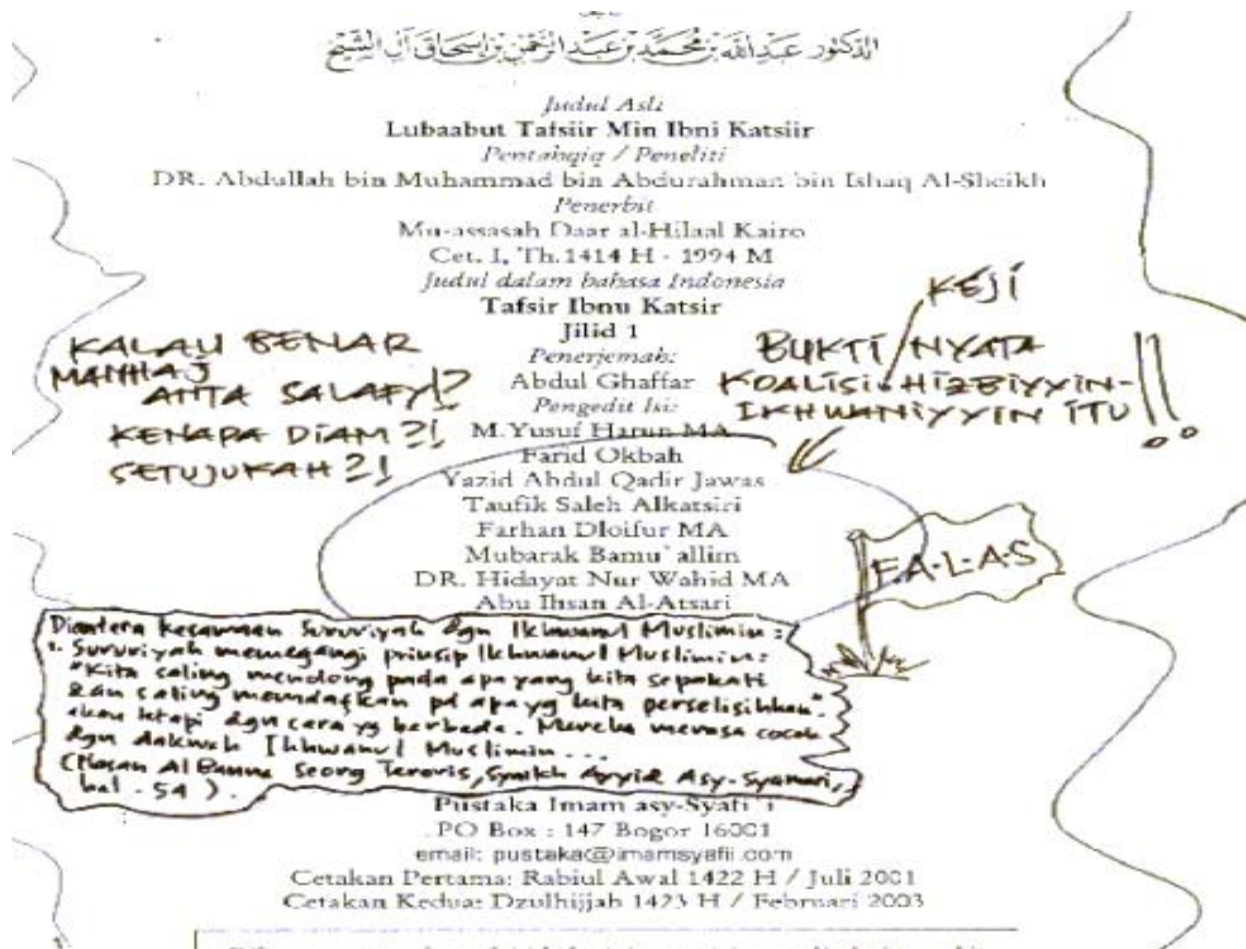 الدكتور عبدالله بن محمد بن عبدالرحمن بن إسحاق آل الشيخ
Judul Asli
Lubaabut Tafsiir Min Ibni Katsiir
Pentahqiq / Peneliti
DR. Abdullah bin Muhammad bin Abdurahman bin Ishaq Al-Sheikh
Penerbit
Mu-assasah Daar al-Hilaal Kairo
Cet. I, Th.1414 H - 1994 M
Judul dalam bahasa Indonesia
Tafsir Ibnu Katsir
Jilid 1
Penerjemah:
Abdul Ghaffar
Pengedit Isi:
M. Yusuf Harun MA
Farid Okbah
Yazid Abdul Qadir Jawas
Taufik Saleh Alkatsiri
Farhan Dloifur MA
Mubarak Bamu`allim
DR. Hidayat Nur Wahid MA
Abu Ihsan Al-Atsari
KALAU BENAR
MANHAJ
ANTA SALAFY!?
KENAPA DIAM?!
SETUJUKAH?!
KEJI
BUKTI NYATA
KOALISI HIZBIYYIN-
IKHWANIYYIN ITU !!
F.A.L.A.S
Diantera kesamaan Sururiyah dgn Ikhwanul Muslimin:
1. Sururiyah memegangi prinsip Ikhwanul Muslimin:
"Kita saling menolong pada apa yang kita sepakati
dan saling memaafkan pd apa yg kita perselisihkan".
akan tetapi dgn cara yg berbeda. Mereka merasa cocok
dgn dakwah Ikhwanul Muslimin...
(Hasan Al Banna Seorg Teroris, Syaikh Ayyid Asy-Syamari,
hal. 54).
Pustaka Imam asy-Syafi`i
PO Box : 147 Bogor 16001
email: pustaka@imamsyafii.com
Cetakan Pertama: Rabiul Awal 1422 H / Juli 2001
Cetakan Kedua: Dzulhijjah 1423 H / Februari 2003